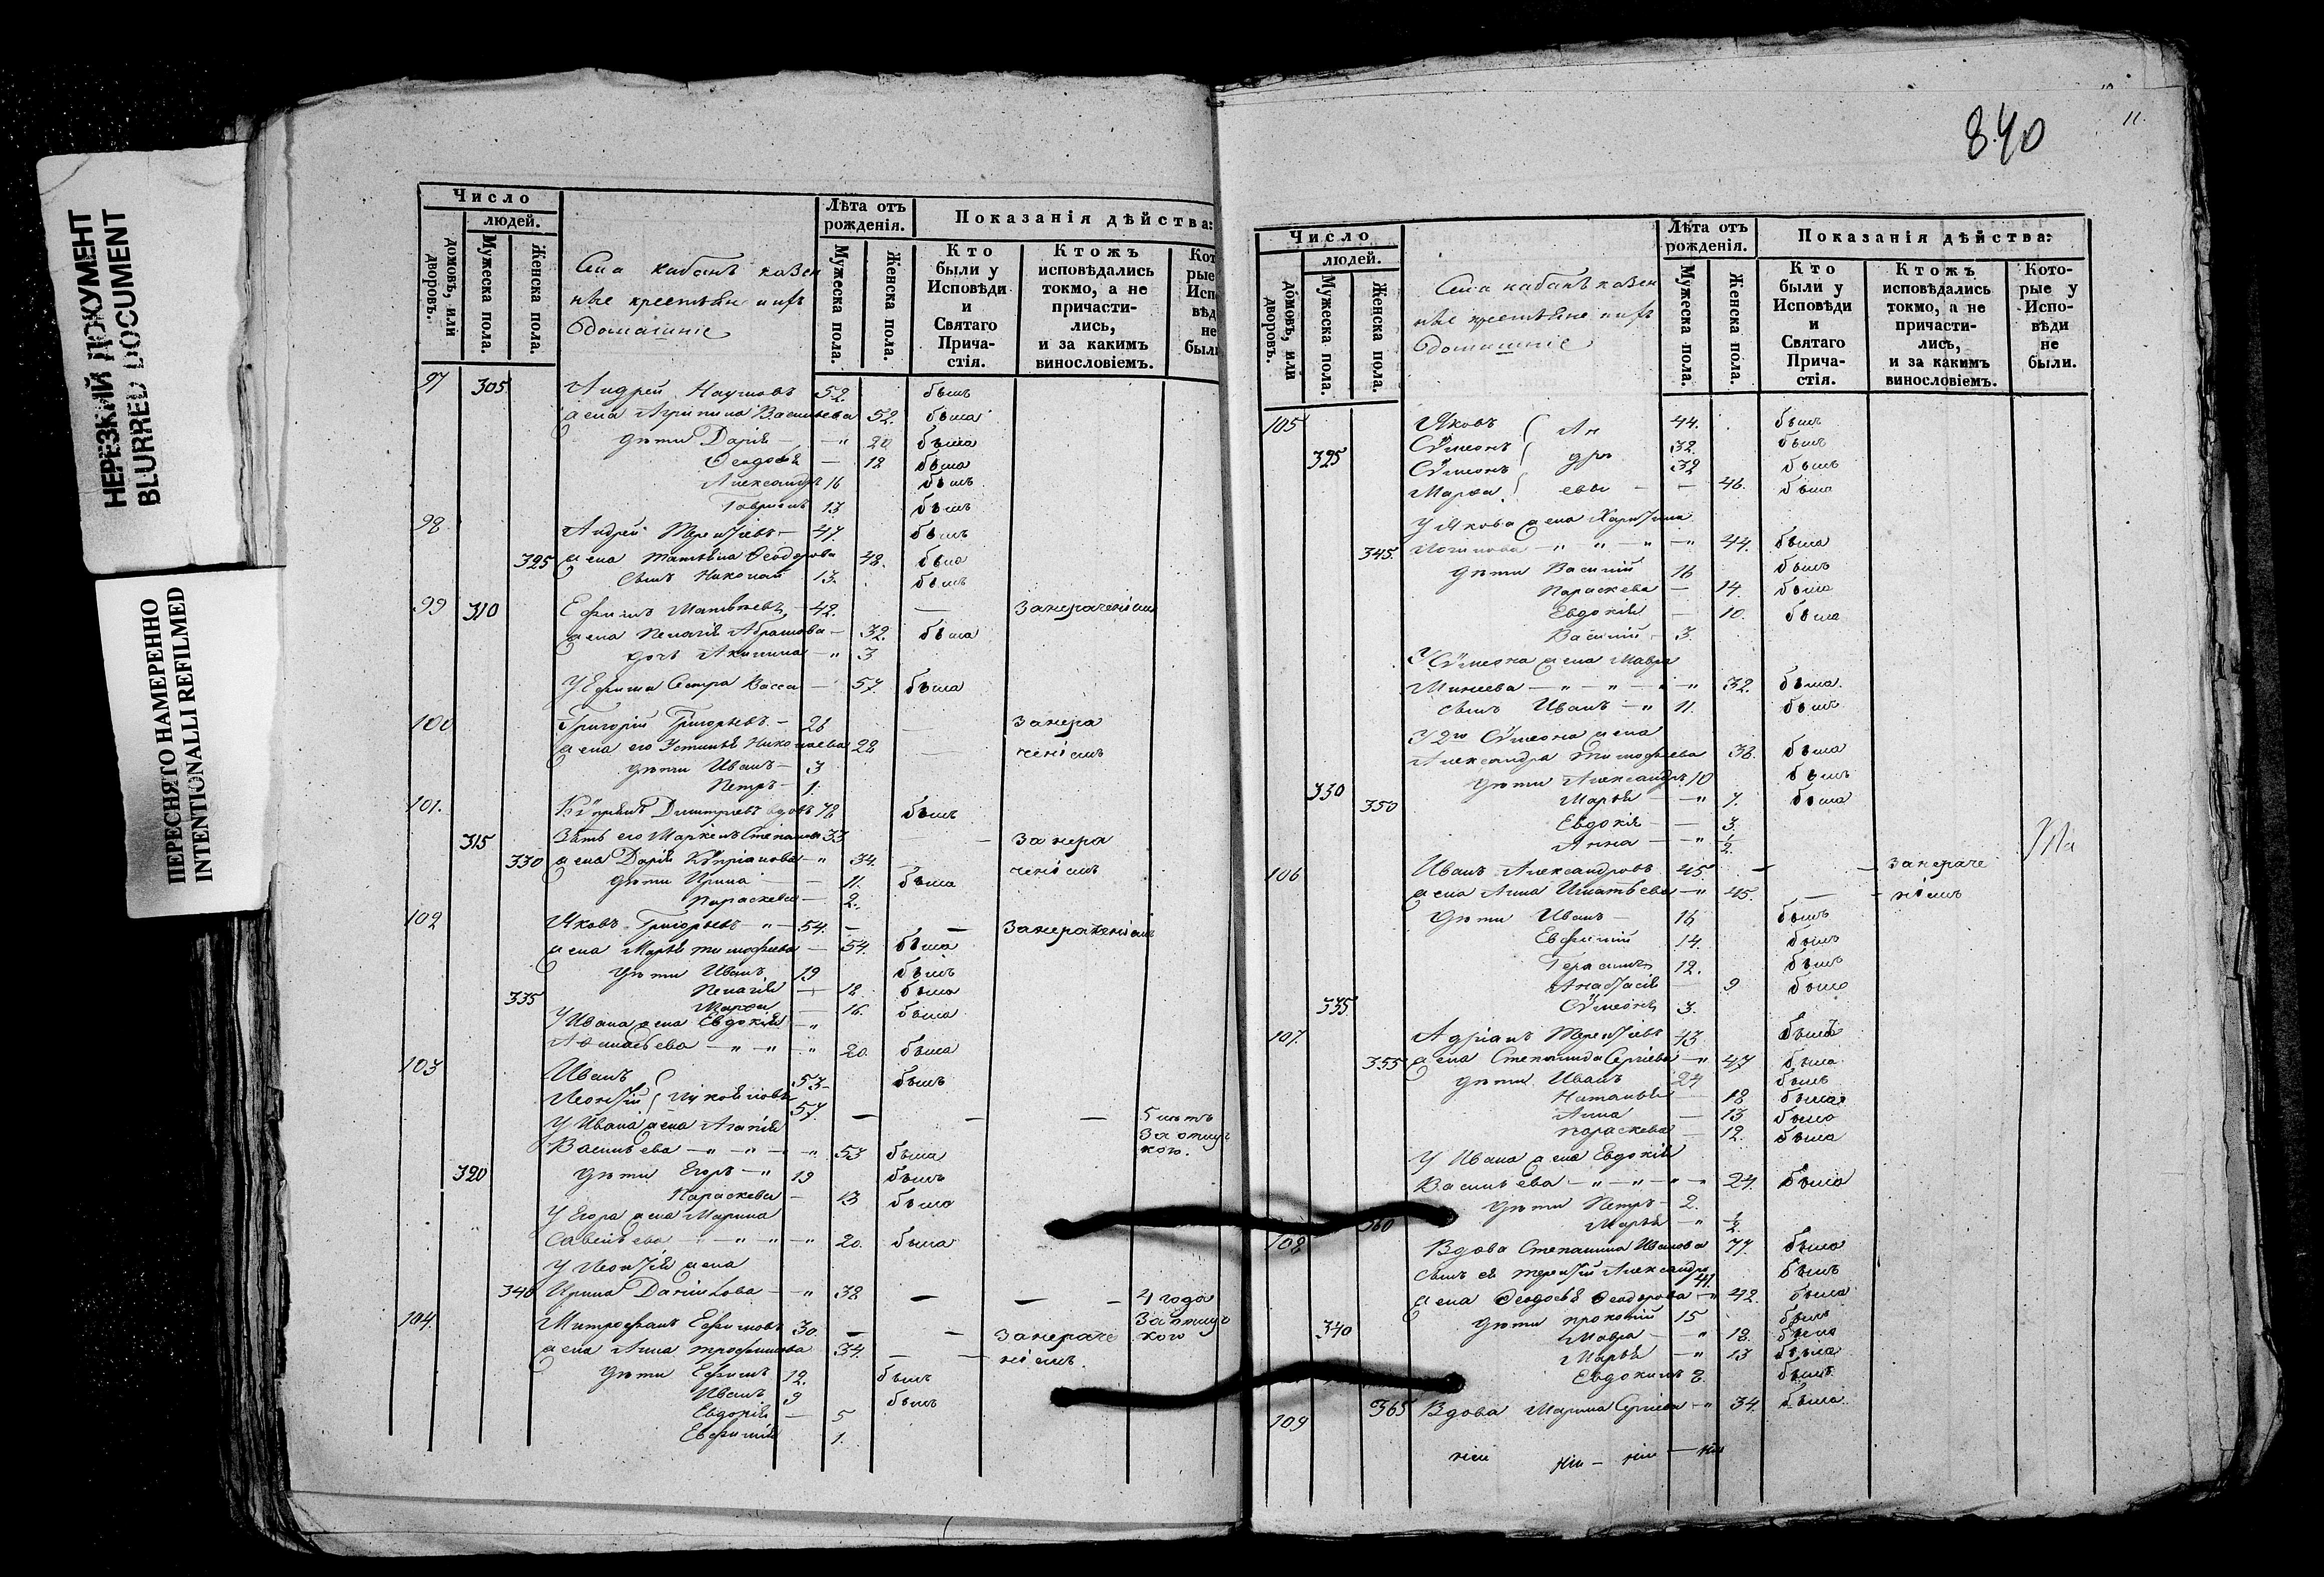 НЕРЕЗКИЙ ДОКУМЕНТ
BLURRED DOCUMENT
ПЕРЕСНЯТО НАМЕРЕННО
INTENTIONALLI REFILMED
Число
людей.
домовъ, или дворовъ.
Мужеска пола.
Женска пола.
Села кабанъ казен
ные крестьяне и ихъ
домашніе
Лѣта отъ рожденія.
Мужеска пола.
Женска пола.
Показанія дѣйства:
Кто были у Исповѣди и Святаго Прича-стія.
Ктожъ исповѣдались токмо, а не причасти-лись, и за какимъ винословіемъ.
97 305 Андрей Наумовъ 52. былъ
жена Агрипина Васильева 52. была
дѣти Дарія — " 20 была
Ѳеодосія — 18 была
Александръ 16 былъ
Гавріилъ 13 былъ
98. Андрей Терентіевъ — 47. былъ
325 жена Татьяна Ѳеодорова 48. была
сынъ Николай 13. былъ
99 310 Ефимъ Матвѣевъ — 42. — Занераченіемъ
жена Пелагія Абрамова — 32. была
дочь Акилина — " 3
У Ефима Сестра Васса — 57. была
100 Григорій Григорьевъ — 28 — Занера
жена его Устинья Николаева 28 — ченіемъ
дѣти Иванъ — 3
Петръ — 1.
101. Кѵпріянъ Димитріевъ вдовъ 78 былъ
315 Зять его Маркелъ Степановъ 33 — Занера
330 жена Дарія Кѵпріанова — " 34. — ченіемъ
дѣти Ирина — 11. была
Параскева — 2.
102 Яковъ Григорьевъ — " — 54. — — Занераченіемъ
жена Марья Тимофеева — 54. была
дѣти Иванъ 19 былъ
335 Пелагія — 18 была
Марѳа — 16. была
У Ивана жена Евдокія — "
— " — " — " 20. была
103 Иванъ 53 — былъ
Леонтій 57. — — — 5 лѣтъ
У Ивана жена Агапія
за отлуч
Васильева — " — " — " 53 была кою.
320 дѣти Егоръ — " 19 былъ
Параскева — 13 была
У Егора жена Марина
Савельева — " — " — " 20. была
У Леонтія жена
340 Ирина Данилова — " 38 — — — 4 года
104. Митрофанъ Ефимовъ 30. — — Занераче
за отлуч
кою
жена Анна Трофимова 34. — — ніемъ.
дѣти Ефимъ 12. былъ
Иванъ 9 былъ
Евдокія — 5
Евфимія 1.
840
11.
Число
людей.
домовъ, или дворовъ.
Мужеска пола.
Женска пола.
Села кабанъ казен
ные крестьяне и ихъ
домашніе
Лѣта отъ рожденія.
Мужеска пола.
Женска пола.
Показанія дѣйства:
Кто были у Исповѣди и Святаго Прича-стія.
Ктожъ исповѣдались токмо, а не причасти-лись, и за какимъ винословіемъ.
Кото-рые у Испо-вѣди не были.
105 Яковъ Ан 44. былъ
Сѵмеонъ 32. былъ
325 Сѵмеонъ дре 32 былъ
Марѳа евы — — 46. была
У Якова жена Харитина
345. Логинова — " — " — " 44. была
дѣти Василій 16 былъ
Параскева — 14. была
Евдокія — 10. была
Василій — 3.
У Сѵмеона жена Мавра
Минеева — " — " — " 32. была.
сынъ Иванъ — " 11. былъ
У 2го Сѵмеона жена
Александра Тимофеева 38. была
330 дѣти Александръ 10 былъ
350 Марья — " 7. была
Евдокія — 3.
Анна — " ½.
106 Иванъ Александровъ 45. — — Занераче
жена Анна Игнатьева — " 45. — ніемъ
дѣти Иванъ — 16 былъ
Евфимій 14. былъ
Герасимъ 12. былъ
Анастасія — 9 была
335. Сѵмеонъ 3.
107. Адріанъ Терентіевъ 43. былъ
355 жена Степанида Сергіева — " 47 была
дѣти Иванъ 24 былъ
Наталья — 18 была
Анна — 13 была
Параскева — 12. была
У Ивана жена Евдокія
Васильева — " — " — " 24. была
дѣти Петръ — 2.
360 Марья — " ½.
108 Вдова Степанида Иванова 77. была
сынъ ея Терентій Александр. 41 былъ
жена Ѳеодосья Ѳеодорова — " 42. была
340 дѣти Прокопій 15 былъ
Мавра — " 18. была
Марья — " 13 была
Евдокимъ 8. былъ
109 365 Вдова Марина Сергіева — " 34. была